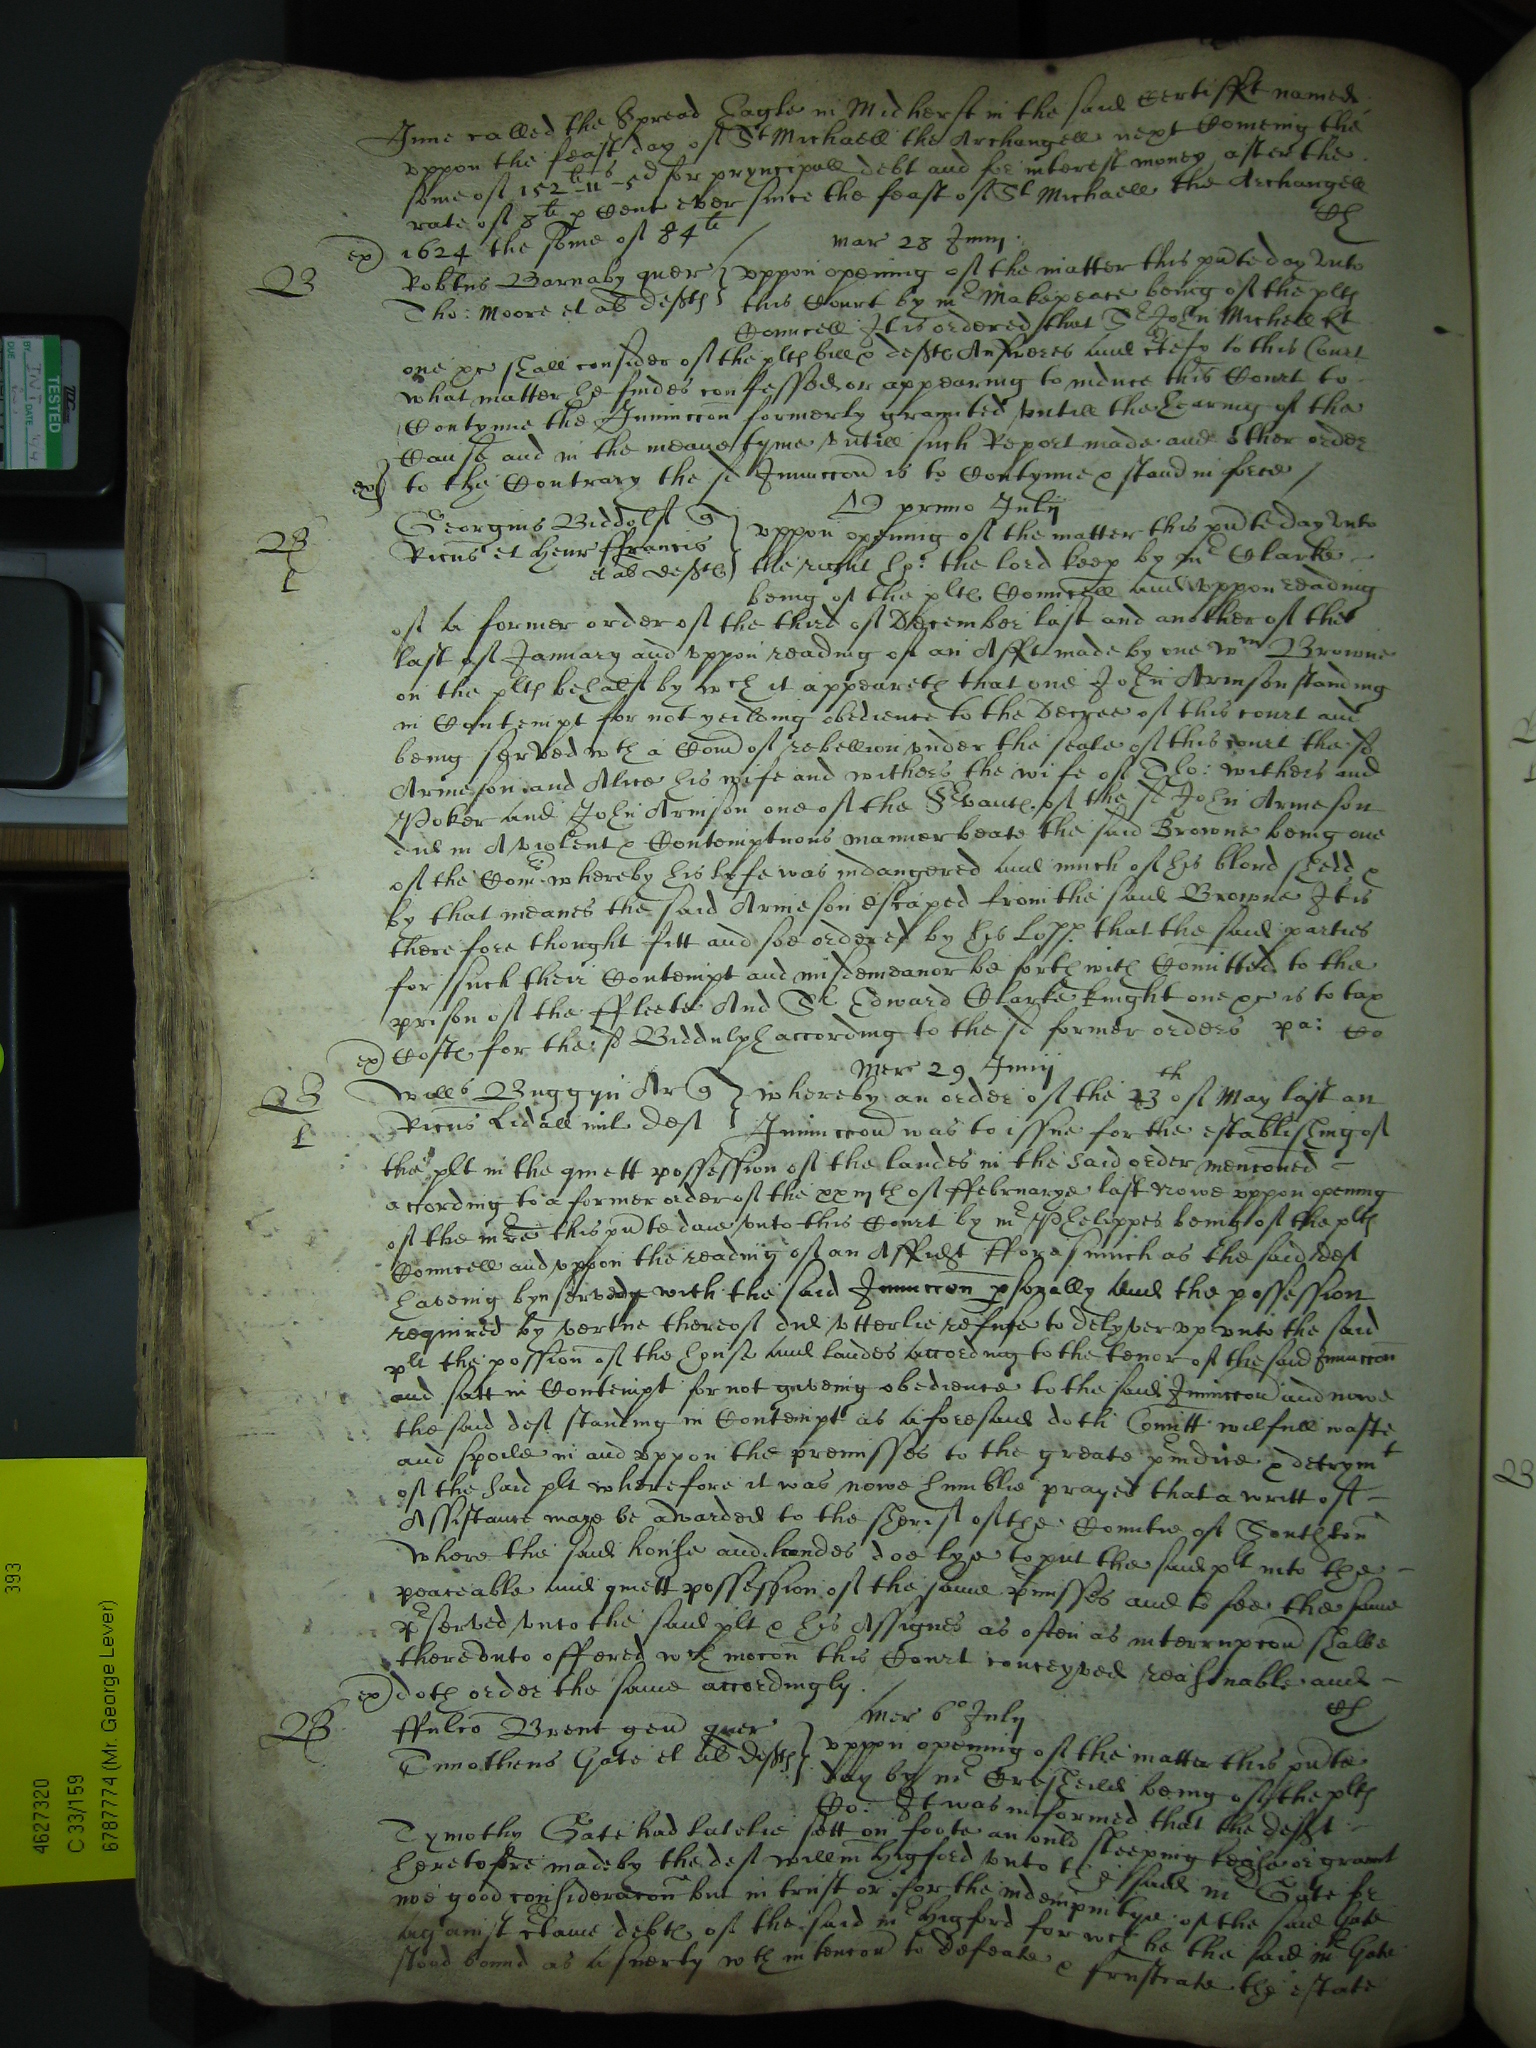 Inne called the Spread Eagle in Midherst in the said Certifft named
uppon the feast day of St Michaell the Archangell next Comeing the
some of 152li-11s-5d for pryncipall debt and for interest money after the
rate of 8li p Cent ever since the feast of St Michaell the Archangell
ex) 1624 the some of 84li /
Mar 28 Junij
B Robtus Barnaby quer } uppon opening of the matter this pnte day unto
Tho: Moore et al defts } this Court by mr Makepeace being of the plts
Councell It is ordered that Sr John Michell kt
one &c shall consider of the plts bill & defts Answeres and certefy to this Court
what matter he findes confessed or appearing to induce this Court to
Contynue the Iniunccon formerly graunted untill the hearing of the
Cause and in the meane tyme untill such Report made and other order
ex) to the Contrary the sd Iniunccon is to Contynue & stand in force /
primo Julij
B Georgius Biddolf q } uppon opening of the matter this pnte day unto
Ricus et Henr ffrancis } the right ho: the lord keep by mr Clarke
et al defts } being of the plts Councell and uppon reading
of a former order of the third of December last and another of the
last of January and uppon reading of an Afft made by one Wm Browne
on the plts behalf by wch it appeareth that one John Armson standing
in Contempt for not yeilding obedience to the Decree of this court and
being served wth a Com of rebellion under the seale of this court the sd
Armeson and Alice his wife and withers the wife of Tho: withers and
Poker and John Armson one of the Srvauts of the sd John Armeson
did in A violent & Contemptuous manner beate the said Browne being one
of the Comrs whereby his lyfe was indangered and much of his bloud shedd &
by that meanes the said Armeson escaped from the said Browne It is
therefore thought fitt and soe ordered by his Lopp that the said parties
for such their Contempt and misdemeanor be forthwith Comitted to the
prison of the ffleete And Sr Edward Clarke knight one &c is to tax
ex) Costs for the sd Biddulph according to the sd former orders pa: Co
Mer 29 Junij
B Wills Buggyn Ar q } whereby an order of the 23th of May last an
Ricus Lidall mil deft } Iniunccon was to issue for the establishing of
the plt in the quiett possession of the landes in the said order menconed
according to a former order of the xxiijth of ffebruarye last Nowe uppon opening
of the mre this pnte daie unto this Court by mr Phelippes being of the plts
Councell and uppon the reading of an Affidt fforasmuch as the said deft
haveing byn served with the said Iniunccon psonally And the possession
required by vertue thereof did utterlie refuse to delyver up unto the said
plt the possion of the house and landes according to the tenor of the said Iniunccon
and sate in Contempt for not giveing obedience to the said Iniunccon and nowe
the said deft standing in Contempt as aforesaid doth Comitt wilfull waste
and spoile in and uppon the premisses to the greate piudice & detrymt
of the said plt wherefore it was nowe humblie prayed that a writt of
Assistance maye be awarded to the sherif of the Countie of Southton
where the said house and landes doe lye to put the said plt into the
peaceable and quiett possession of the same pmisses and to see the same
pserved unto the said plt & his Assignes as often as interrupcon shalbe
thereunto offered wch mocon this Court conceyved reasonable and
ex) doth order the same accordingly /
Mer 6o Julij
B ffulco Brent gen quer } uppon opening of the matter this pnte
Timotheus Gate et al defts } day by mr Gresheild being of the plts
Co: It was informed that the deft
Tymothy Gate had latelie sett on foote an ould sleeping lease or graunt
heretofore made by the deft willm Higford unto the said mr Gate for
noe good consideracon but in trust or for the indempnitye of the said Gate
against certaine debts of the said mr Higford for wch he the said mr Gate
stood bound as a suerty wth intencon to defeate & frustrate the estate
TESTED
DATE
BY
DUE
393
4627320
C 33/159
6787774 (Mr. George Lever)